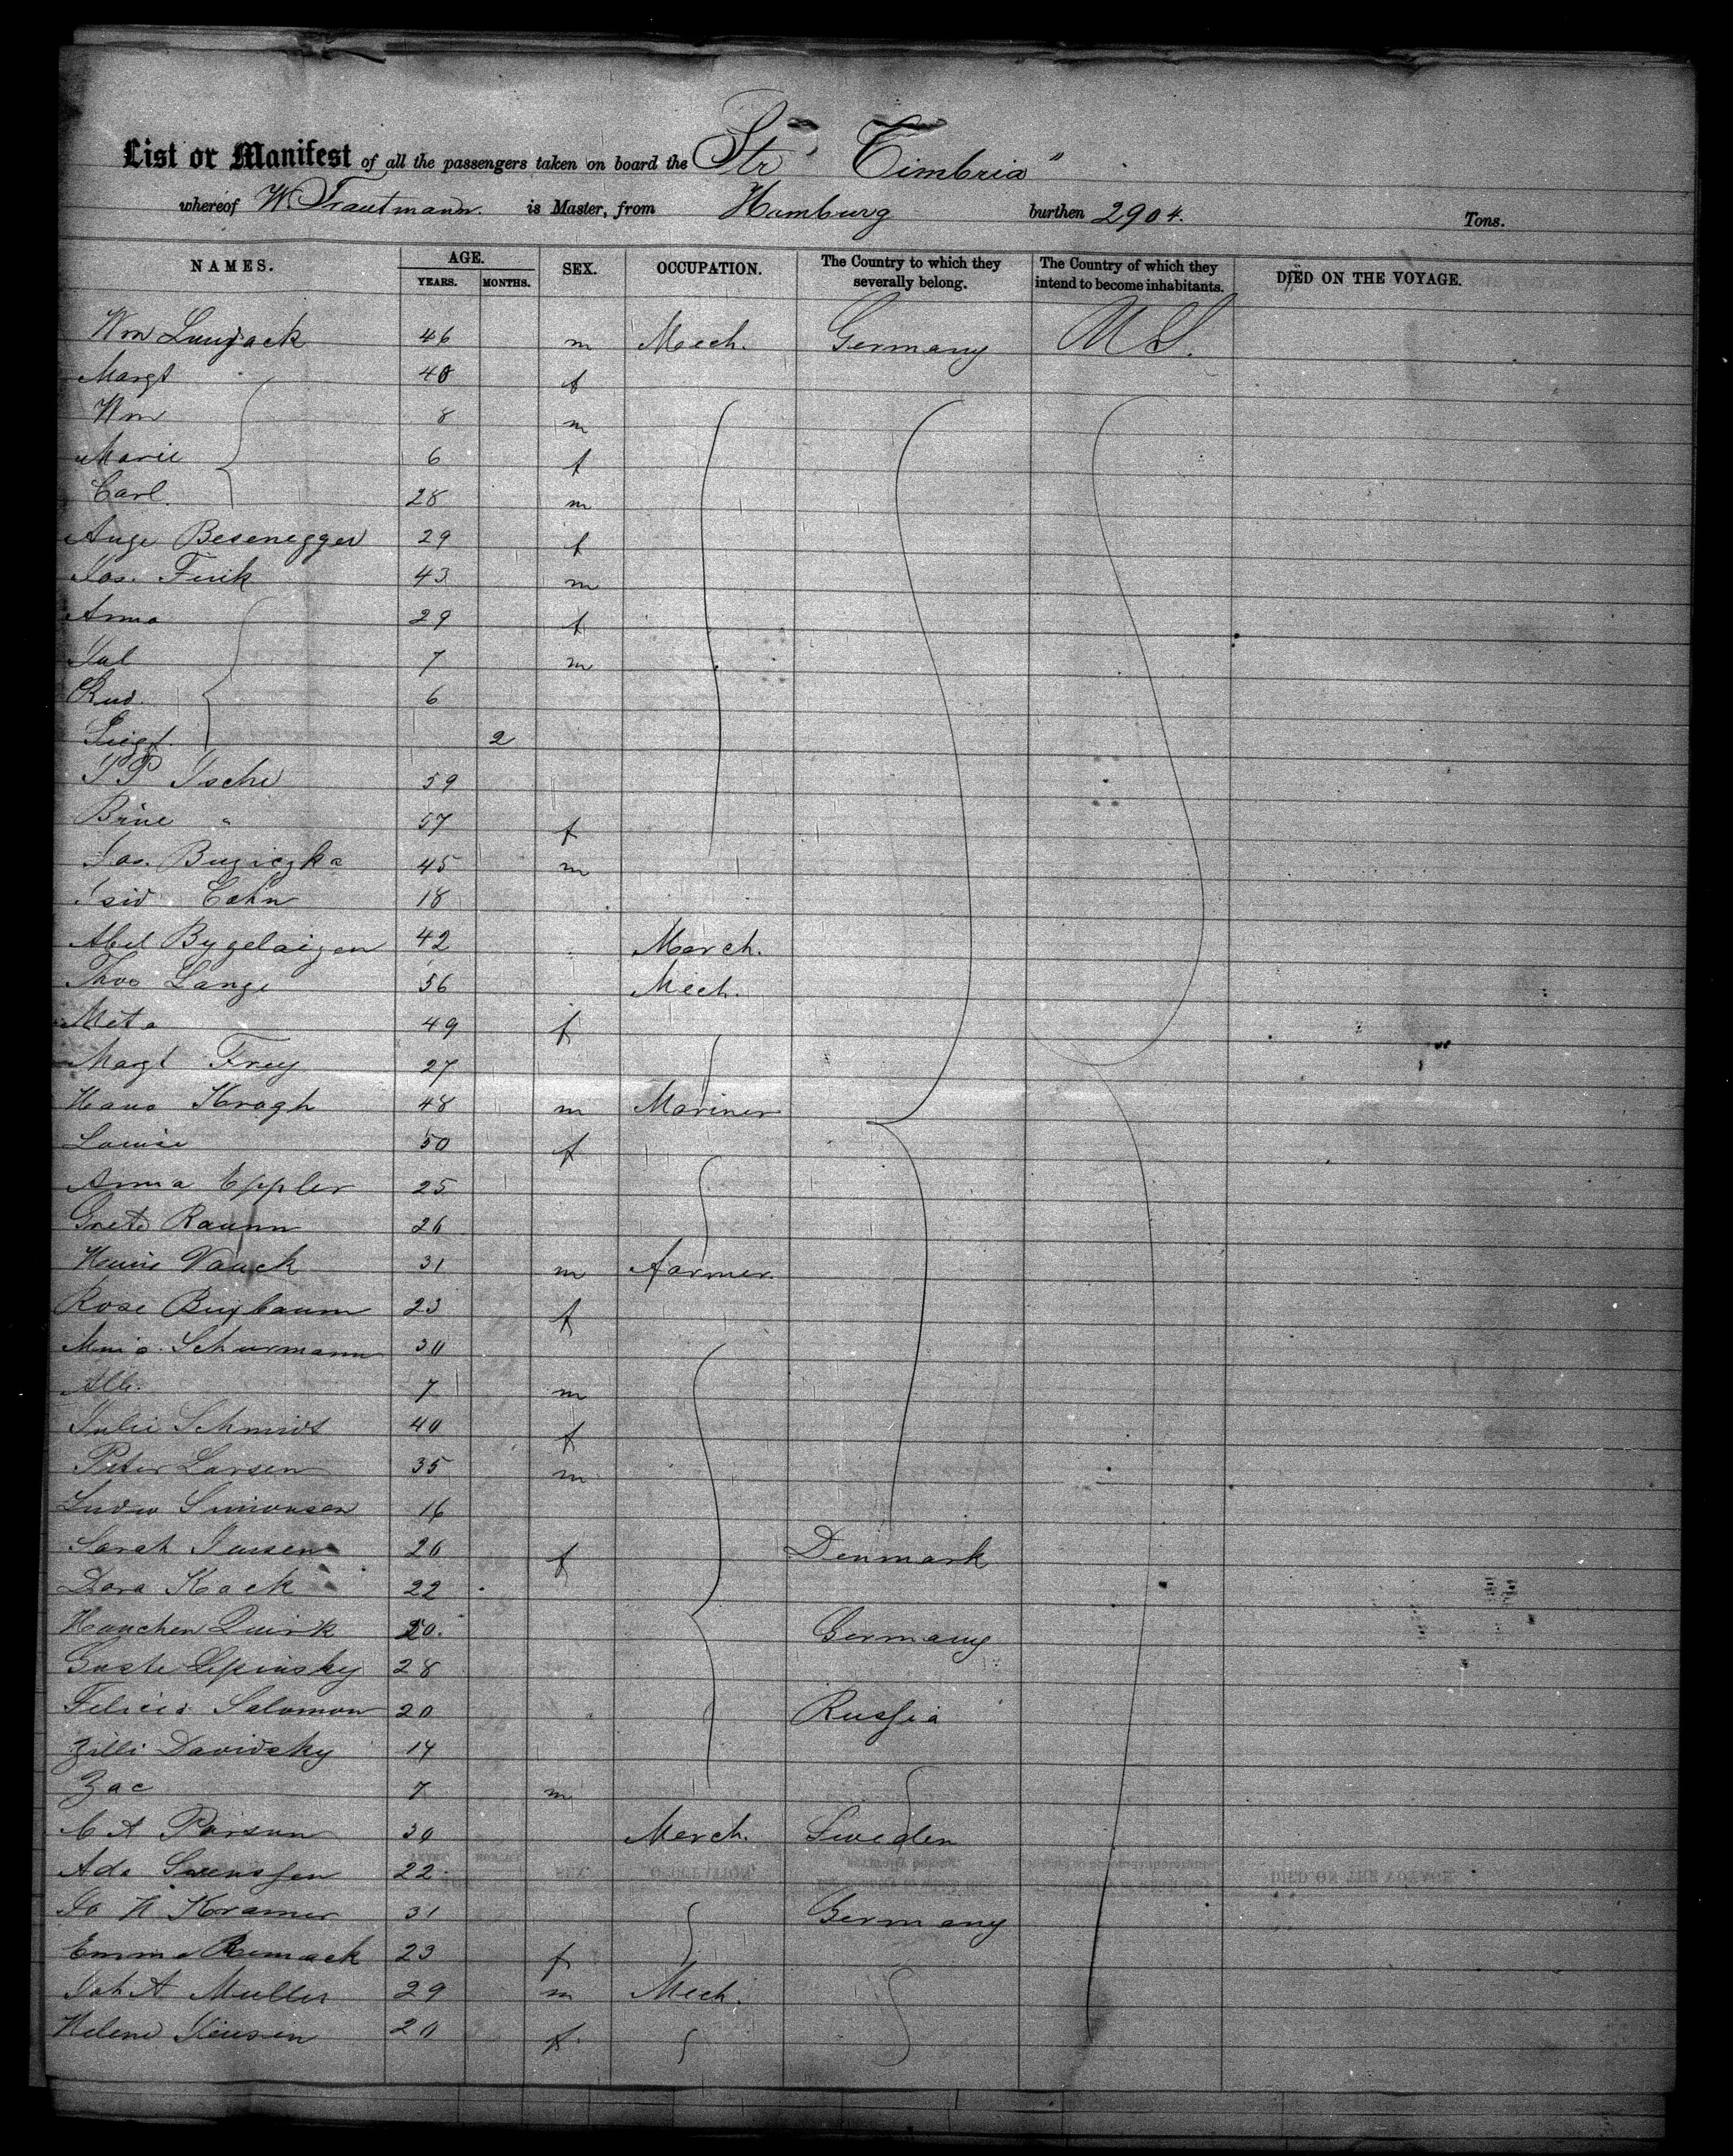 List or Manifest of all the passengers taken on board the Str "Cimbria"
whereof W. Trautmann. is Master, from Hamburg burthen 2904. Tons.
NAMES. AGE. YEARS. MONTHS. SEX. OCCUPATION. The Country to which they severally belong. The Country of which they intend to become inhabitants. DIED ON THE VOYAGE.
Wm 46 m Mech. Germany U S.
Margt 40 f
Wm 8 m
Marie 6 f
Carl 28 m
Besenegger 29 f
Jos. Fink 43 m
Anna 29 f
Jul 7 m
Rud. 6
Siegf. 2
J P Ische 59
Brine " 57 f
Jos. Buziczka 45 m
Isid Cohn 18
Abel Bygelaizen 42 Merch.
Thos Lange 56 Mech.
Meta 49 f
Margt Frey 27
Hans Kragh 48 m Mariner
Louise 50 f
Anna Eppler 25
Grete Raunn 26
Vaack 31 m farmer.
Rose Buxbaum 23 f
Schurmann 30
Alb. 7 m
Julie Schmidt 40 f
Peter Larsen 35 m
Ludw Simonsen 16
Sarah Jansen 20 f Denmark
Dora Kack 22
Hanchen Quirk 20. Germany
Guste Lipinsky 28
Felicia Salomon 20 Russia
Zilli Davidsky 14
Zac 7 m
C A Parson 30 Merch. Sweden
Ada Svenssen 22
H Kramer 31 Germany
Emma Remack 23 f
Joh A Muller 29 m Mech.
Helene Jensen 20 f